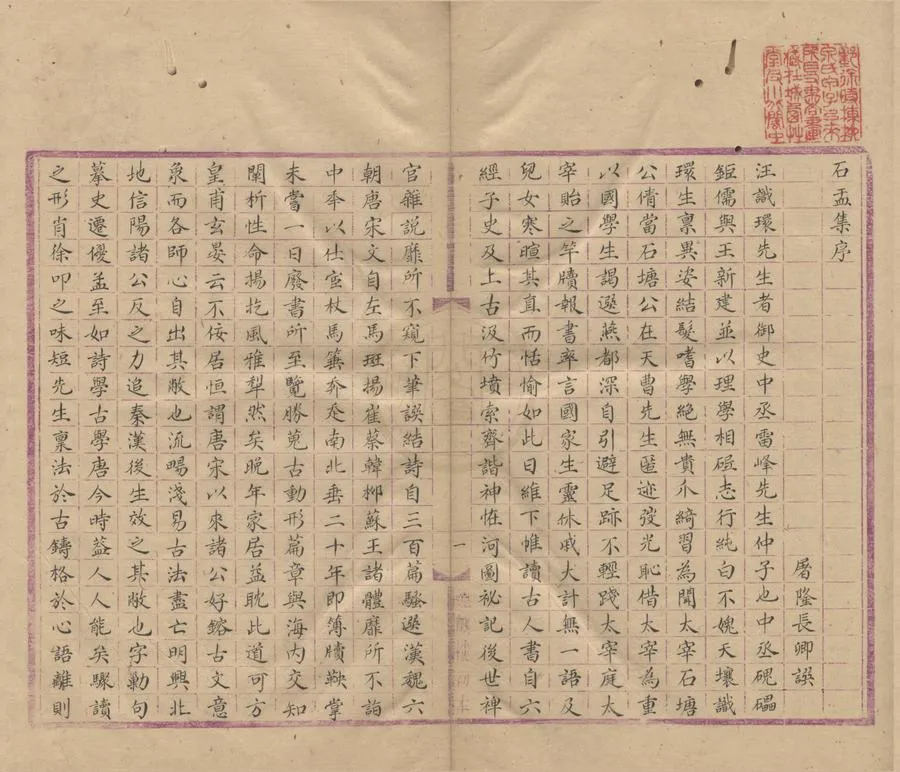 石盂集序
屠隆長卿譔
汪識環先生者御史中丞雷峰先生仲子也中丞磈礧
鉅儒與王新建並以理學相砥志行純白不媿天壤識
環生稟異姿結髮嗜學絶無貴介綺習為聞太宰石塘
公倩當石塘公在天曹先生匿迹弢光恥借太宰為重
以國學生謁選燕都深自引避足跡不輕踐太宰庭太
宰貽之竿牘報書率言國家生靈休戚大計無一語及
兒女寒暄其直而恬愉如此日維下帷讀古人書自六
經子史及上古汲竹墳索齊諧神恠河圖祕記後世稗
官雜說靡所不窺下筆譔結詩自三百篇騷選漢魏六
朝唐宋文自左馬班揚崔蔡韓柳蘇王諸體靡所不詣
中奉以仕宦杖馬箠奔走南北垂二十年即簿牘鞅掌
未嘗一日廢書所至覽勝蒐古動形篇章與海内交知
闡析性命揚扢風雅犁然矣晚年家居益耽此道可方
皇甫玄晏云不佞居恒謂唐宋以來諸公好鎔古文意
象而各師心自出其敝也流暢淺易古法盡亡明興北
地信陽諸公反之力追秦漢後生效之其敝也字勦句
摹史遷優孟至如詩學古學唐今時葢人人能矣驟讀
之形肖徐叩之味短先生稟法於古鑄格於心語離則
一